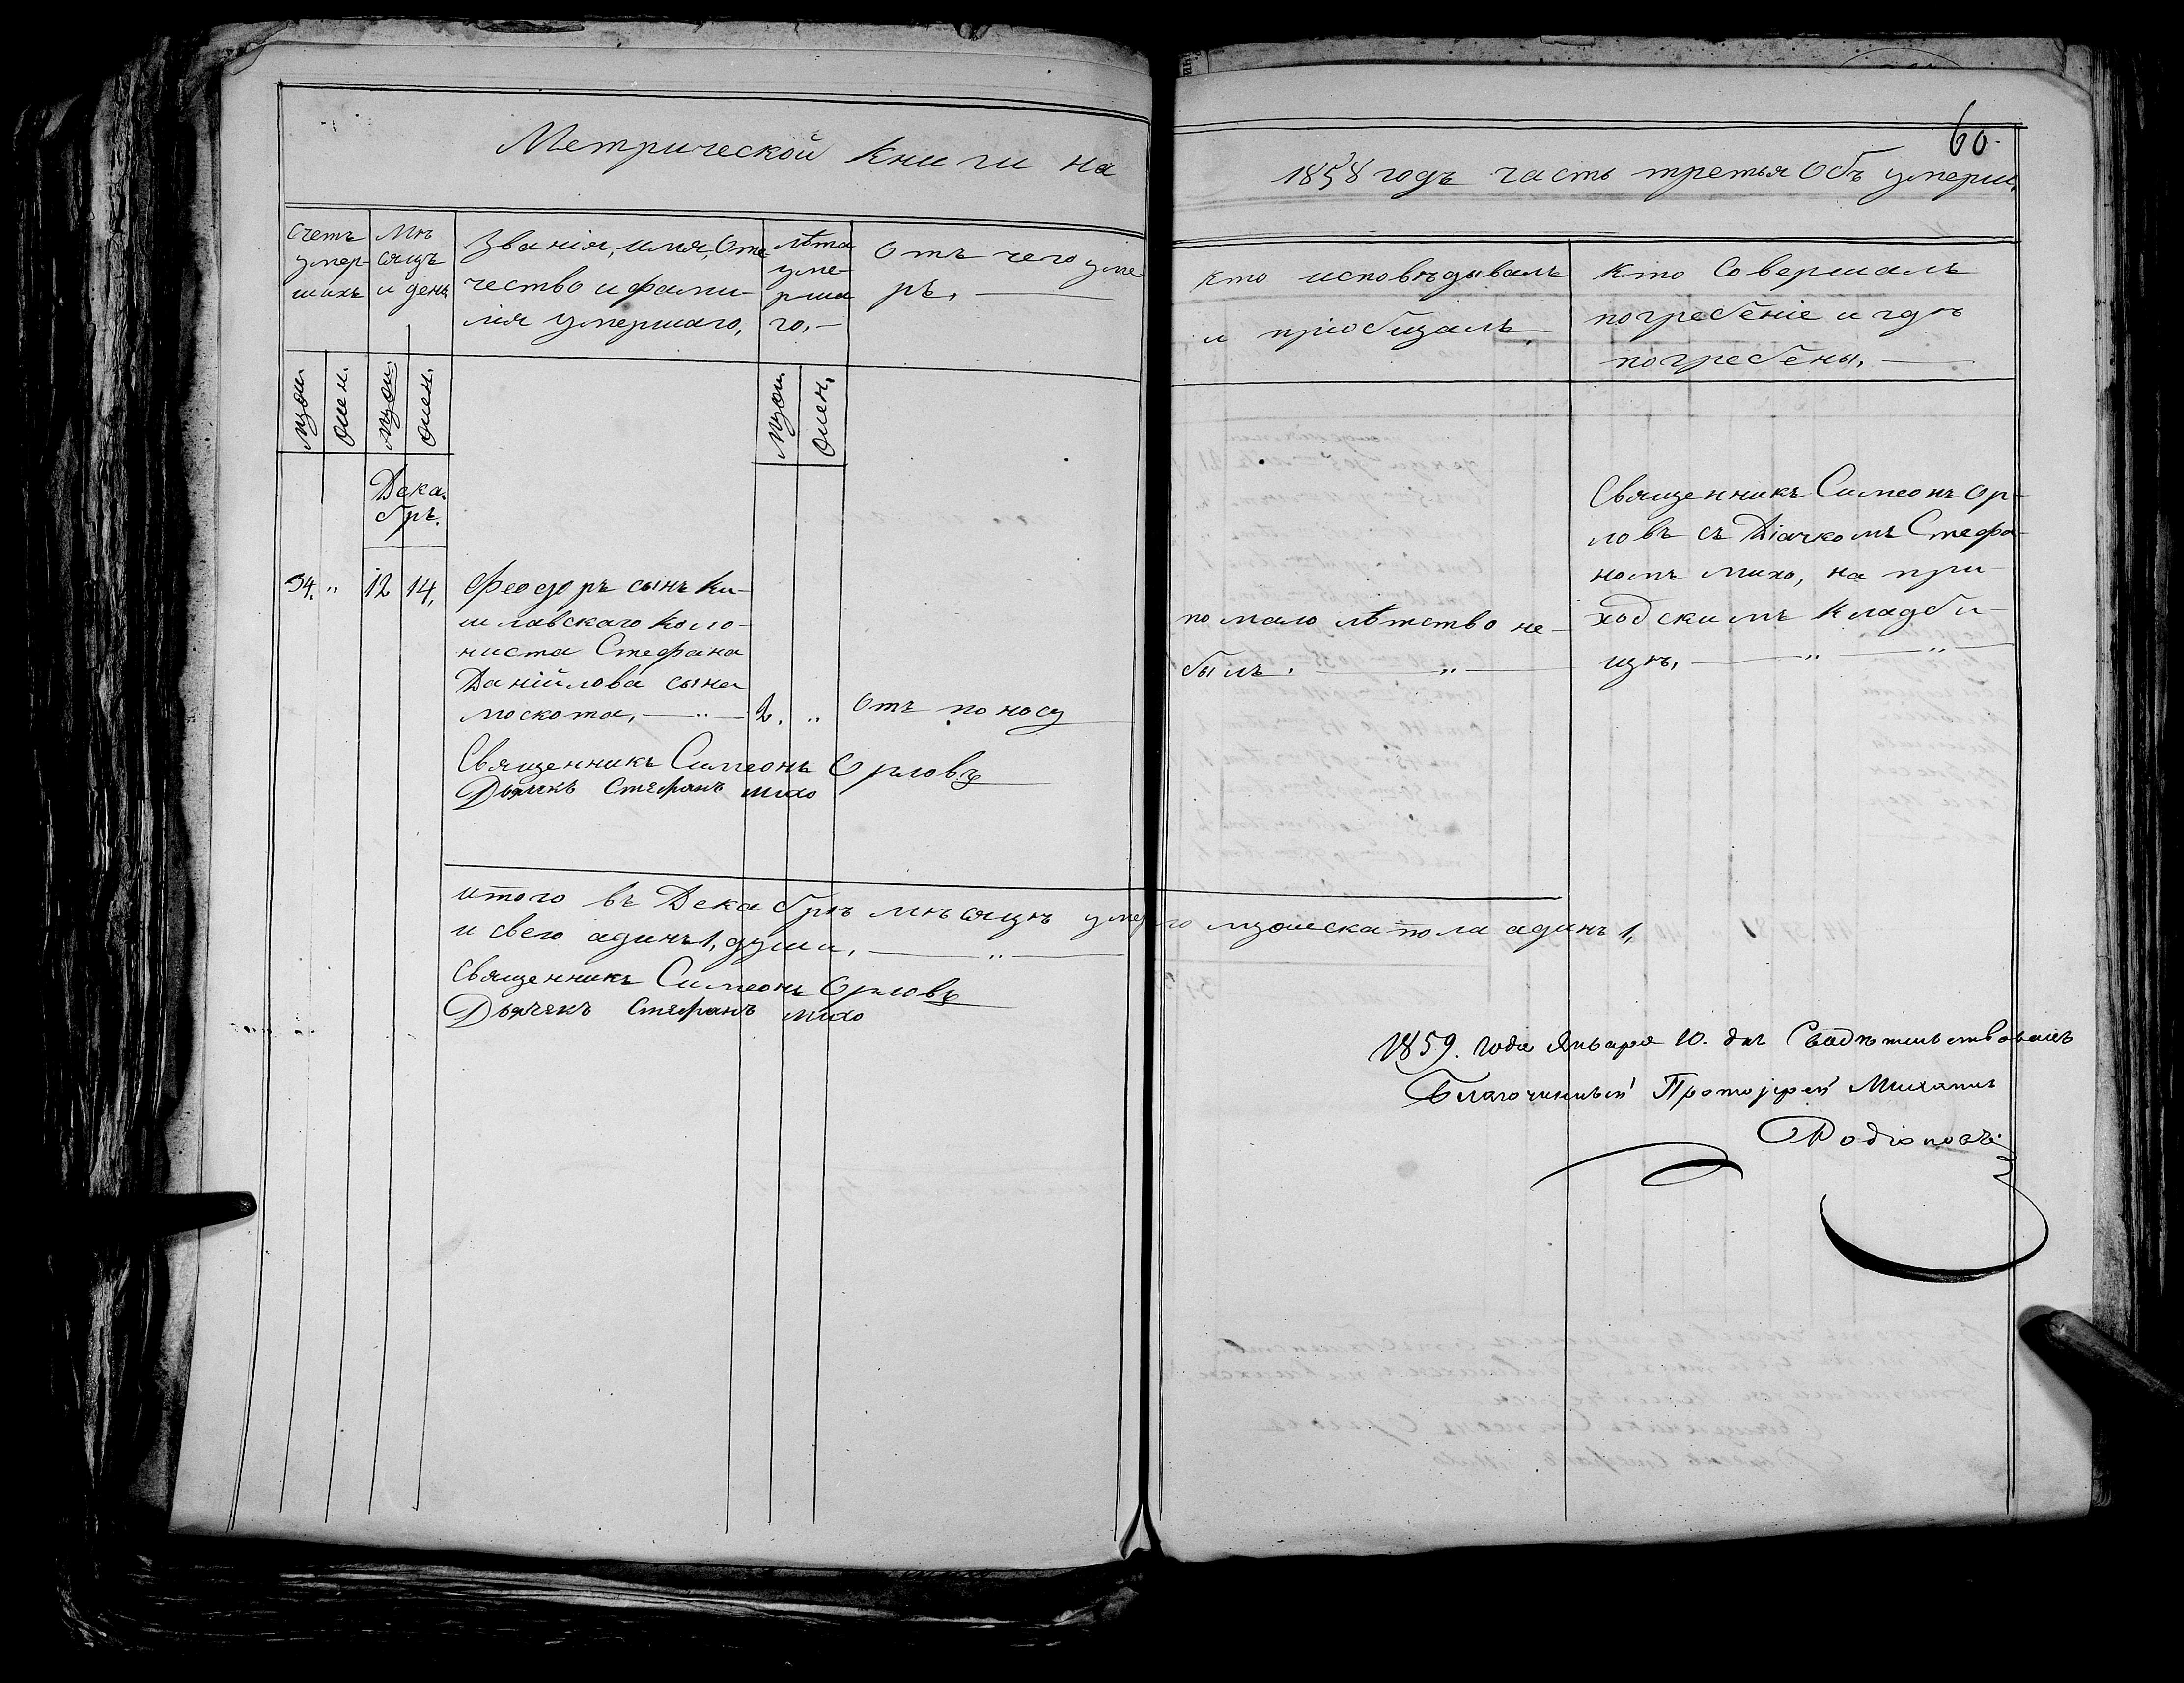 Метрической книги на
1858 годъ часть третья Объ умерш,
60.
Счетъ умер- шихъ
Мѣ сяцъ и день
Званія, имя, Оте чество и фами- лія умершаго,
лѣта уме- рша го,-
Отъ чего уме ръ.
Кто исповѣдывалъ и пріобщалъ
Кто Совершалъ погребеніе и гдѣ погребены.
Мужи.
Жен.
Мужи.
Жен.
Мужи.
Жен.
Дека.
брь.
34. " 12 14,
Феодоръ сынъ Ки-
шлавскаго коло-
ниста Стефана
Данiйлова сына
москота, — " — 2. " Отъ поносу
по мало лѣтство не-
былъ. — "
Священникъ Симеонъ Ор-
ловъ съ Діачкомъ Стефа-
номъ михо, на при-
ходскимъ кладби-
щѣ, — " — "
Священникъ Симеонъ Орловъ
Дьячкъ Стефанъ михо
итого въ Декабрѣ мѣсяцѣ умерло мужеска пола адинъ 1,
и свего адинъ 1, души, — " —
Священникъ Симеонъ Орловъ
Дьячекъ Стефанъ михо
1859. года Января 10. дня Свѣдѣтельствовалъ
Благочинный Протоіерей Михаилъ
Родіоновъ